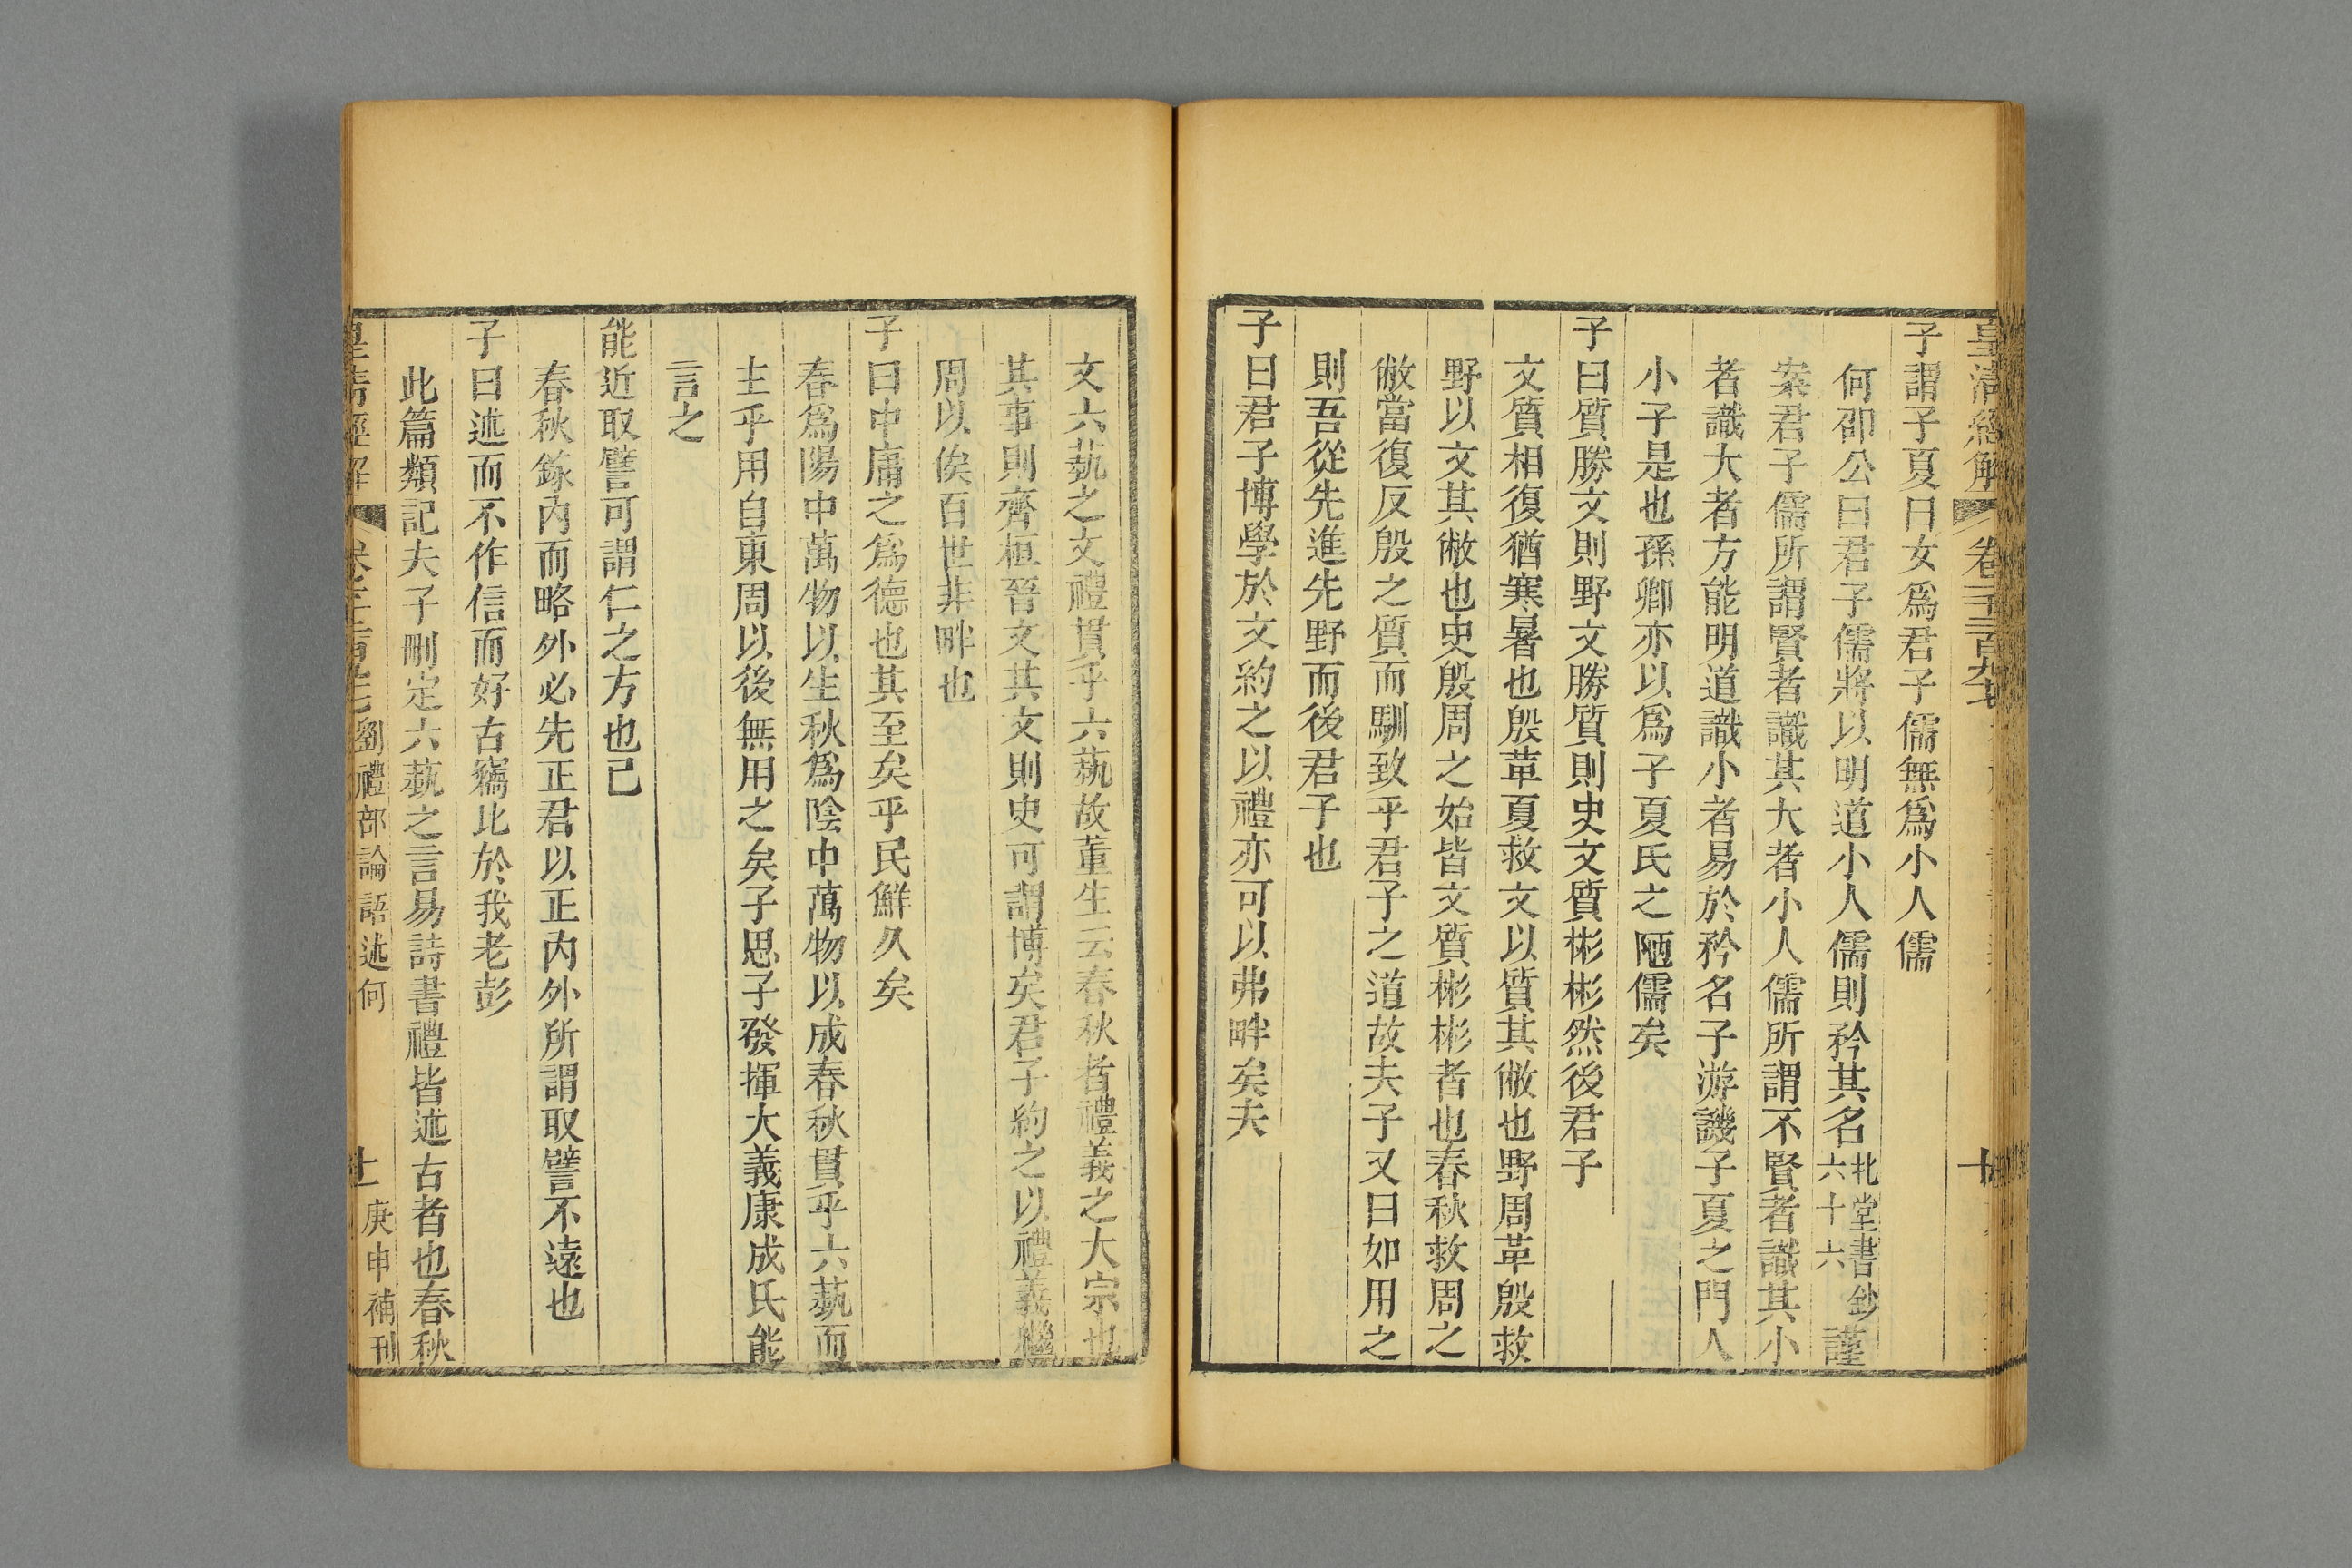 皇清經解 卷一千二百九十七 十
子謂子夏曰女爲君子儒無爲小人儒
何卲公曰君子儒將以明道小人儒則矜其名北堂書鈔六十六謹
案君子儒所謂賢者識其大者小人儒所謂不賢者識其小
者識大者方能明道識小者易於矜名子游譏子夏之門人
小子是也孫卿亦以爲子夏氏之陋儒矣
子曰質勝文則野文勝質則史文質彬彬然後君子
文質相復猶寒暑也殷革夏救文以質其敝也野周革殷救
野以文其敝也史殷周之始皆文質彬彬者也春秋救周之
敝當復反殷之質而馴致乎君子之道故夫子又曰如用之
則吾從先進先野而後君子也
子曰君子博學於文約之以禮亦可以弗畔矣夫
文六埶之文禮貫乎六埶故董生云春秋者禮義之大宗也
其事則齊桓晉文其文則史可謂博矣君子約之以禮義繼
周以俟百世非畔也
子曰中庸之爲德也其至矣乎民鮮久矣
春爲陽中萬物以生秋爲陰中萬物以成春秋貫乎六埶而
主乎用自東周以後無用之矣子思子發揮大義康成氏能
言之
能近取譬可謂仁之方也已
春秋錄內而略外必先正君以正內外所謂取譬不遠也
子曰述而不作信而好古竊比於我老彭
此篇類記夫子刪定六埶之言易詩書禮皆述古者也春秋
皇清經解 卷一千二百九十七 劉禮部論語述何 十一 庚申補刊